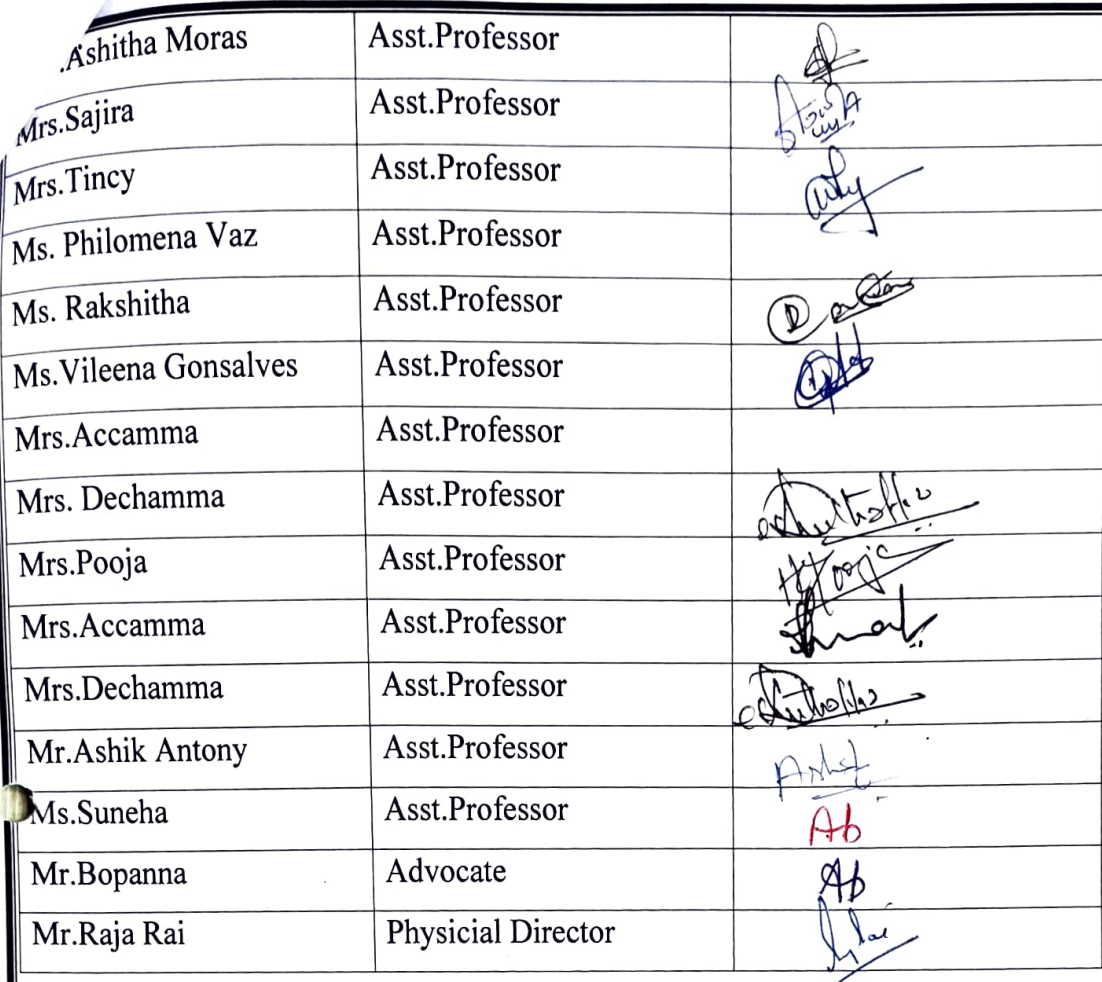 .Ashitha Moras Asst.Professor
Mrs.Sajira Asst.Professor
Mrs.Tincy Asst.Professor
Ms. Philomena Vaz Asst.Professor
Ms. Rakshitha Asst.Professor
Ms.Vileena Gonsalves Asst.Professor
Mrs.Accamma Asst.Professor
Mrs. Dechamma Asst.Professor
Mrs.Pooja Asst.Professor
Mrs.Accamma Asst.Professor
Mrs.Dechamma Asst.Professor
Mr.Ashik Antony Asst.Professor
Ms.Suneha Asst.Professor Ab
Mr.Bopanna Advocate Ab
Mr.Raja Rai Physicial Director